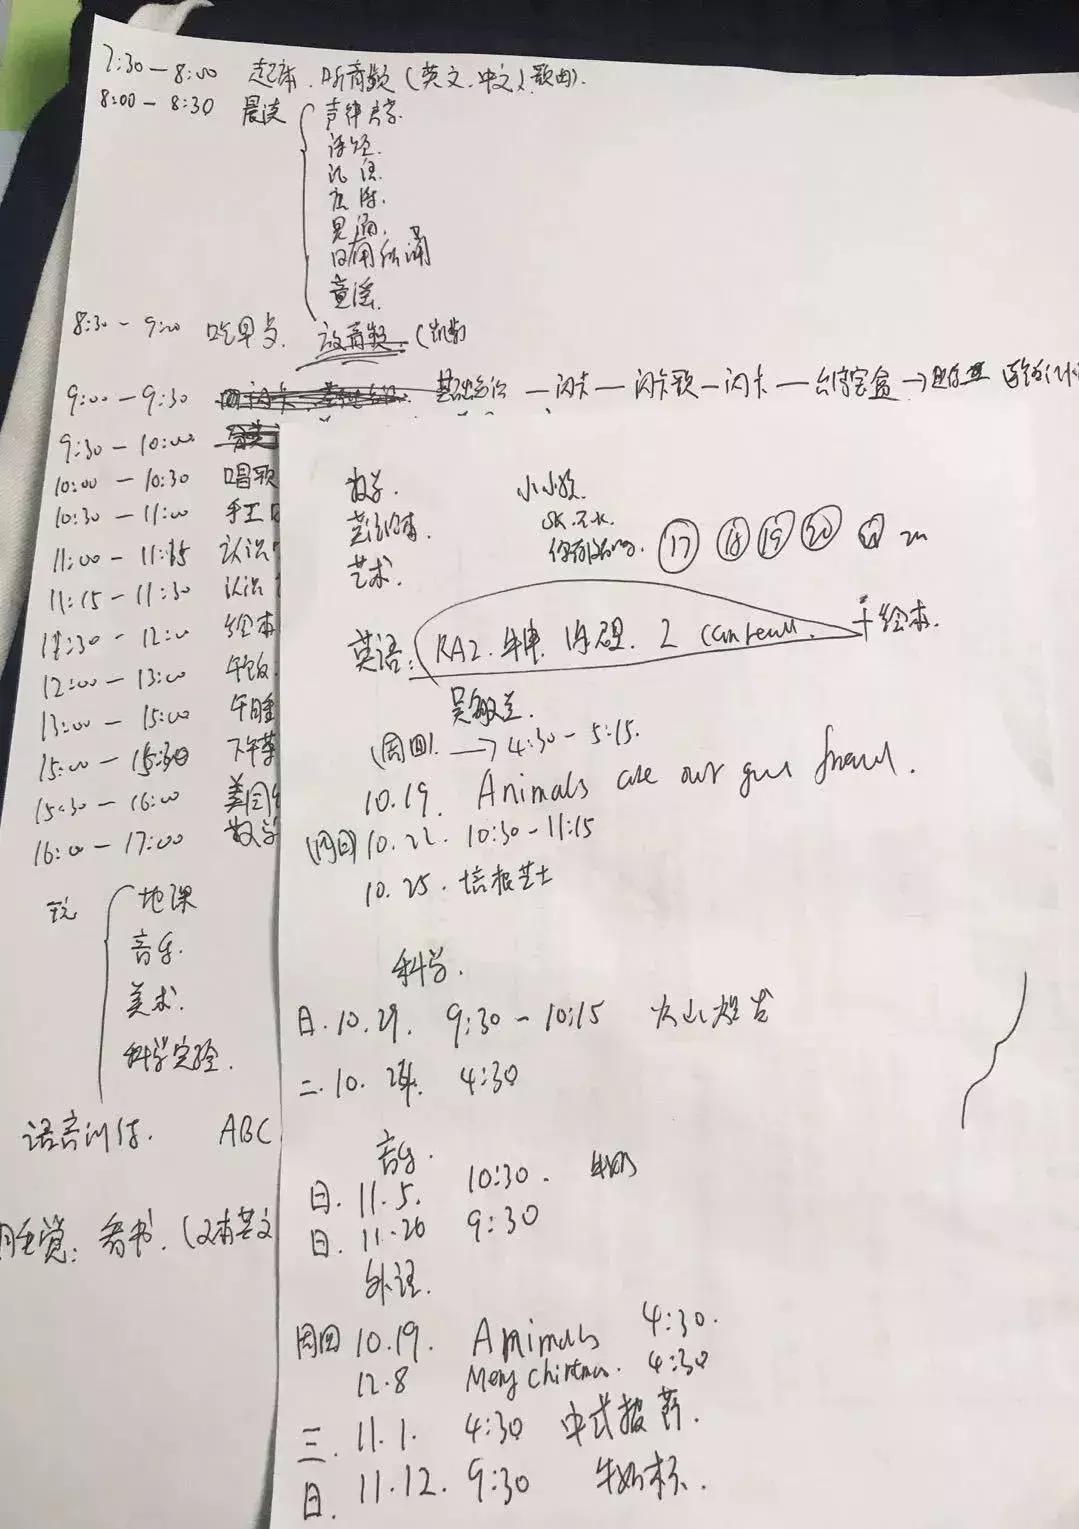 7:30 — 8:00 起床、听音频(英文、中文、歌曲).
8:00 — 8:30 晨读
声律启蒙
诗经.
论语.
唐诗.
晃通.
日有所诵
童谣.
8:30 — 9:00 吃早点. 放音频.
9:00 — 9:30 — 闪卡 — 闪卡歌 — 闪卡 —
9:30 — 10:00
10:00 — 10:30 唱歌
10:30 — 11:00 手工
11:00 — 11:15 认识
11:15 — 11:30 认识
11:30 — 12:00 绘本
12:00 — 13:00 午饭.
13:00 — 15:00 午睡
15:00 — 15:30 下午茶
15:30 — 16:00 美国
16:00 — 17:00 数学
玩
地课
音乐.
美术.
科学实验.
语言训练. ABC
睡觉: 看书.
数学.
艺术.
17 18 19 20
英语: RA2. 牛津. 2 can read. + 绘本.
吴敏兰.
(周四). → 4:30 – 5:15.
10.19. Animals are our good friend.
(周日) 10.22. 10:30 – 11:15
10.25. 培根芝士
科学.
日. 10.29. 9:30 – 10:15 火山爆发
二. 10. 24. 4:30
音乐.
日. 11.5. 10:30.
日. 11.26 9:30
外课.
周四 10.19. Animals 4:30.
12.8 Merry Chirtmas. 4:30
三. 11.1. 4:30 中式披萨.
日. 11.12. 9:30